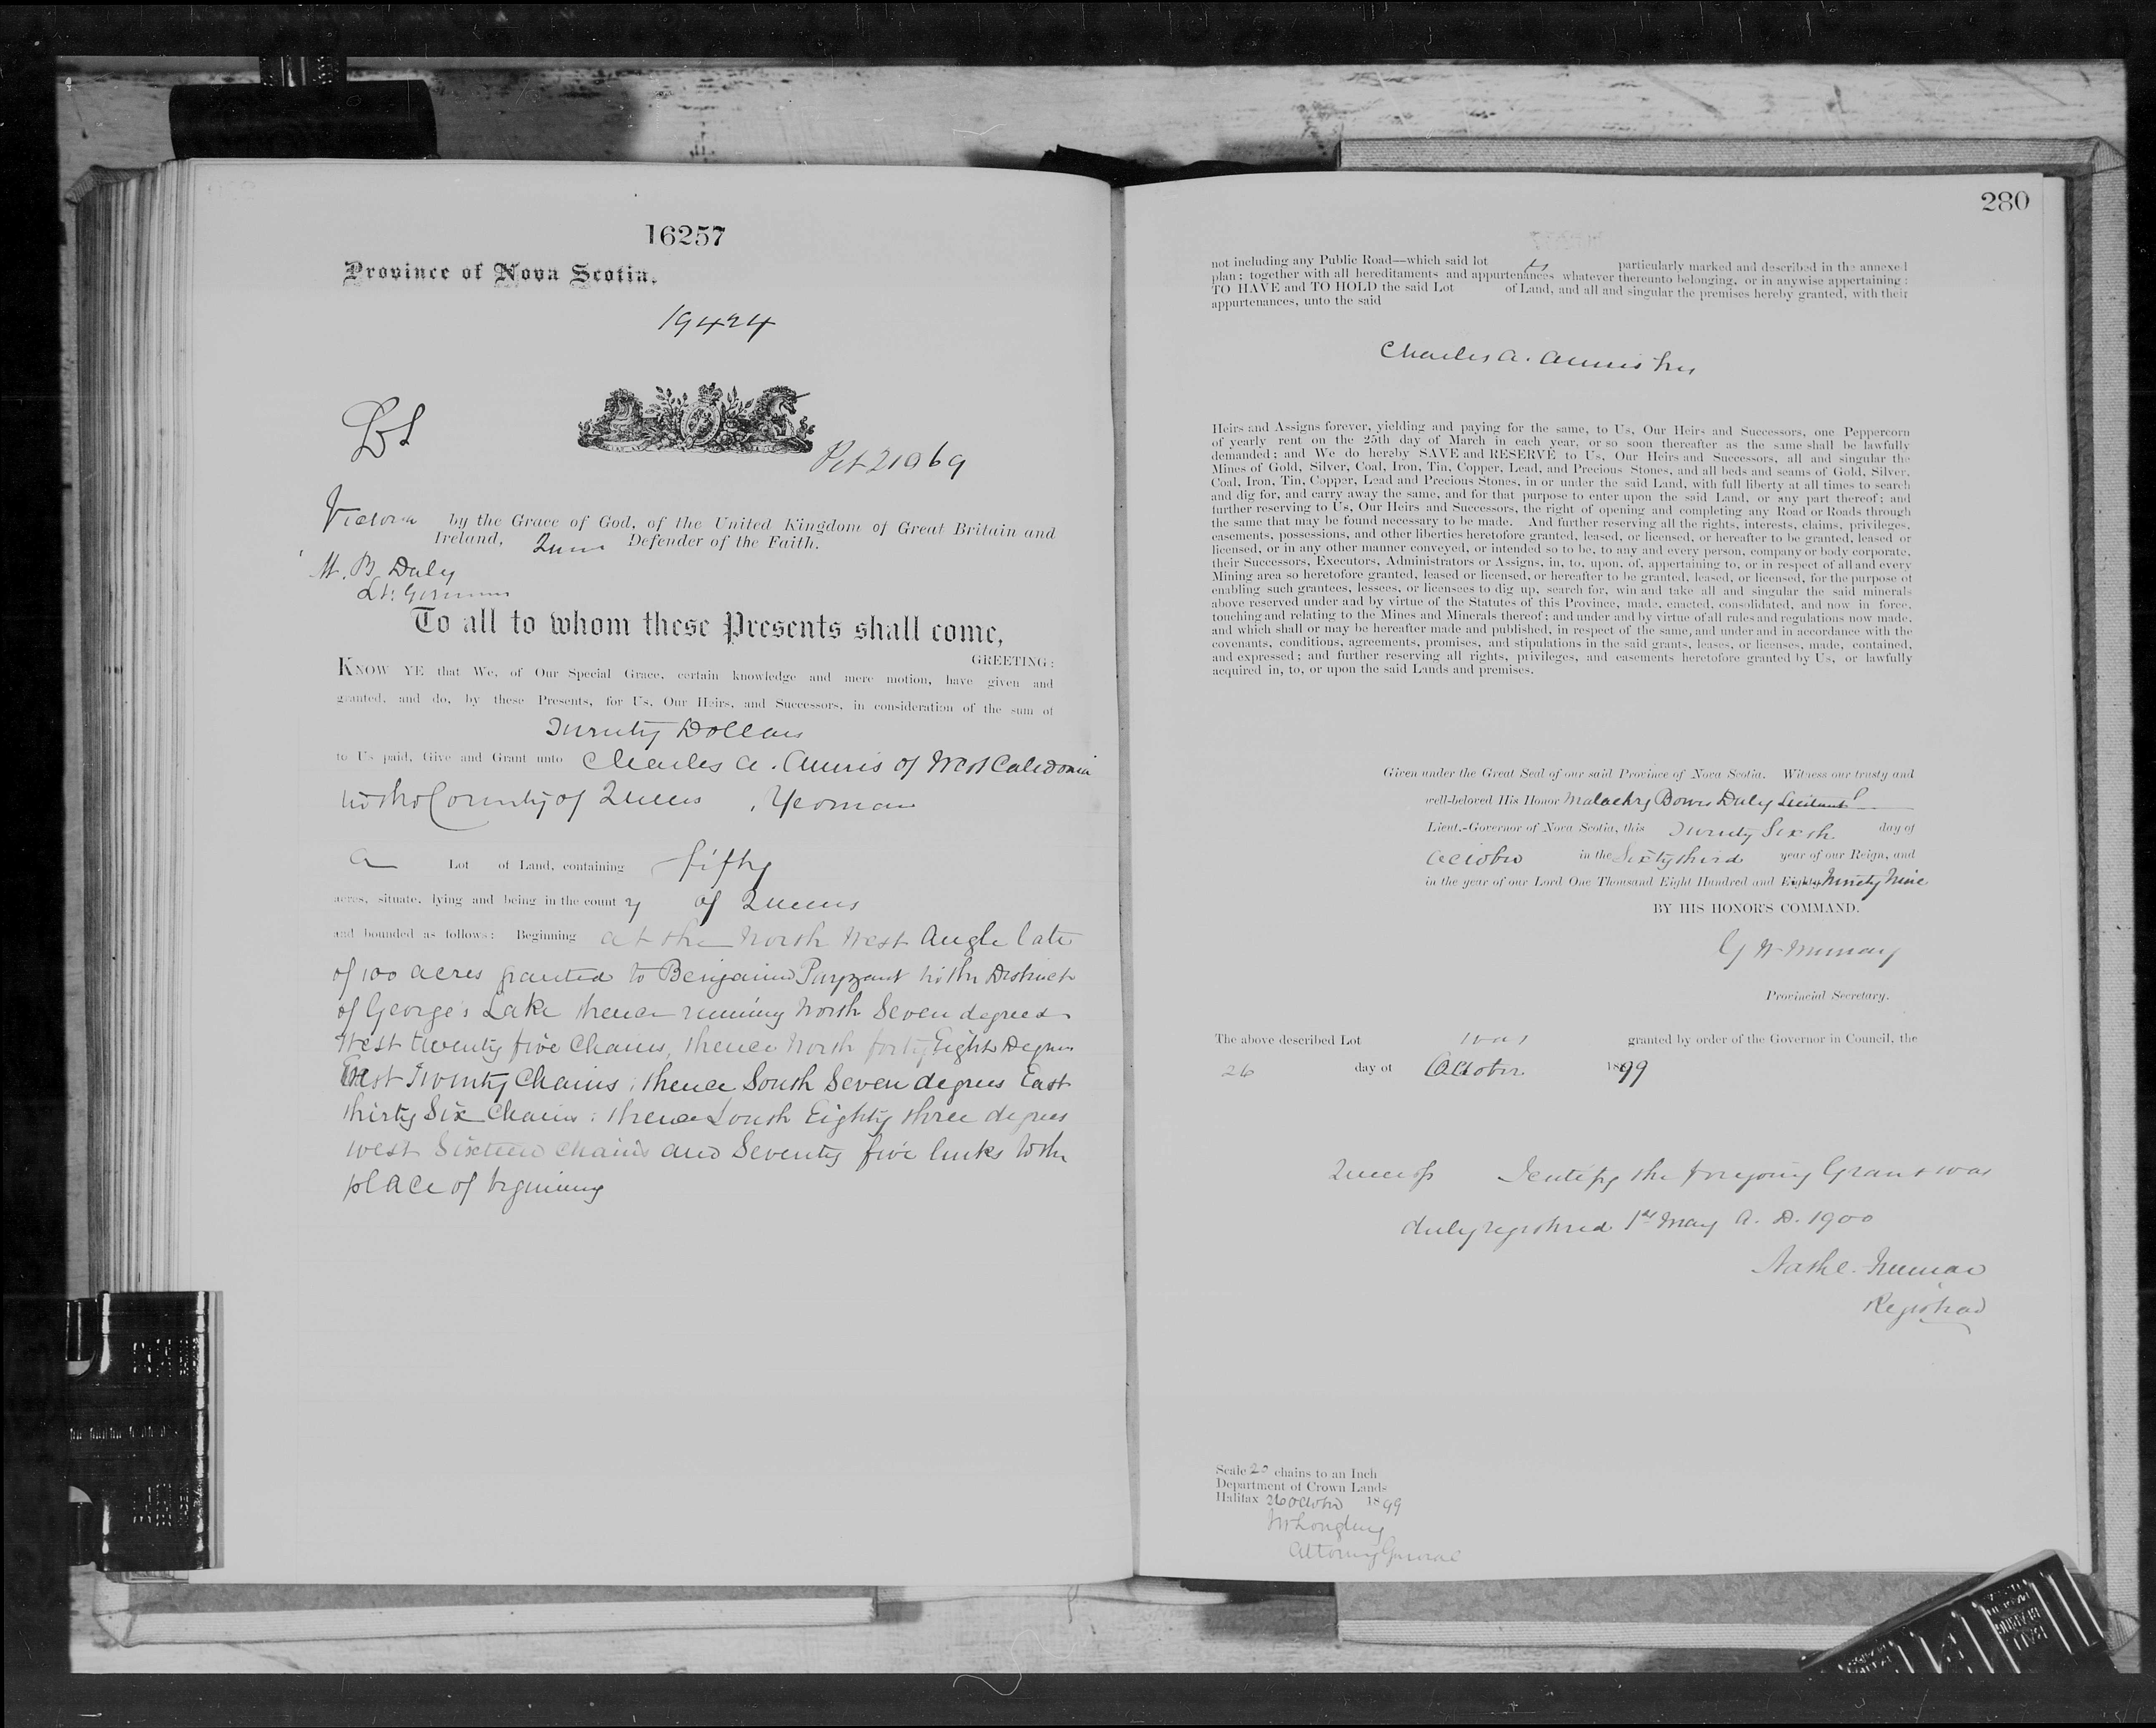 16257
Province of Nova Scotia.
19424
LS
Pet 21969
Victoria by the Grace of God, of the United Kingdom of Great Britain and
Ireland, Queen Defender of the Faith.
M. B. Daly
Lt. Governor
To all to whom these Presents shall come,
GREETING:
KNOW YE that We, of Our Special Grace, certain knowledge and mere motion, have given and
granted, and do, by these Presents, for Us, Our Heirs, and Successors, in consideration of the sum of
Twenty Dollars
to Us paid, Give and Grant unto Charles A. Annis of West Caledonia
in the County of Queens , Yeoman
a Lot of Land, containing fifty
acres, situate, lying and being in the county of Queens
and bounded as follows: Beginning at the North West Angle late
of 100 acres granted to Benjamin in the District
of George's Lake thence running North Seven degrees
West twenty five Chains, thence North forty Eight Degrees
East Twenty Chains ; thence South Seven degrees East
thirty Six Chains : thence South Eighty three degrees
west Sixteen chains and Seventy five links to the
place of beginning
280
not including any Public Road—which said lot is particularly marked and described in the annexed
plan; together with all hereditaments and appurtenances whatever thereunto belonging, or in anywise appertaining:
TO HAVE and TO HOLD the said Lot of Land, and all and singular the premises hereby granted, with their
appurtenances, unto the said
Charles A. Annis his
Heirs and Assigns forever, yielding and paying for the same, to Us, Our Heirs and Successors, one Peppercorn
of yearly rent on the 25th day of March in each year, or so soon thereafter as the same shall be lawfully
demanded; and We do hereby SAVE and RESERVE to Us, Our Heirs and Successors, all and singular the
Mines of Gold, Silver, Coal, Iron, Tin, Copper, Lead, and Precious Stones, and all beds and seams of Gold, Silver,
Coal, Iron, Tin, Copper, Lead and Precious Stones, in or under the said Land, with full liberty at all times to search
and dig for, and carry away the same, and for that purpose to enter upon the said Land, or any part thereof; and
further reserving to Us, Our Heirs and Successors, the right of opening and completing any Road or Roads through
the same that may be found necessary to be made. And further reserving all the rights, interests, claims, privileges,
easements, possessions, and other liberties heretofore granted, leased, or licensed, or hereafter to be granted, leased or
licensed, or in any other manner conveyed, or intended so to be, to any and every person, company or body corporate,
their Successors, Executors, Administrators or Assigns, in, to, upon, of, appertaining to, or in respect of all and every
Mining area so heretofore granted, leased or licensed, or hereafter to be granted, leased, or licensed, for the purpose of
enabling such grantees, lessees, or licensees to dig up, search for, win and take all and singular the said minerals
above reserved under and by virtue of the Statutes of this Province, made, enacted, consolidated, and now in force,
touching and relating to the Mines and Minerals thereof; and under and by virtue of all rules and regulations now made,
and which shall or may be hereafter made and published, in respect of the same, and under and in accordance with the
covenants, conditions, agreements, promises, and stipulations in the said grants, leases, or licenses, made, contained,
and expressed; and further reserving all rights, privileges, and easements heretofore granted by Us, or lawfully
acquired in, to, or upon the said Lands and premises.
Given under the Great Seal of our said Province of Nova Scotia. Witness our trusty and
well-beloved His Honor Malachy Bowes Daly
Lieut.-Governor of Nova Scotia, this Twenty Sixth day of
October in the Sixty third year of our Reign, and
in the year of our Lord One Thousand Eight Hundred and Eighty Ninety Nine
BY HIS HONOR'S COMMAND.
G H Murray
Provincial Secretary.
The above described Lot was granted by order of the Governor in Council, the
26 day of October 1899
Queens ss I certify the foregoing Grant was
duly registered 1st May A. D. 1900
Registrar
Scale 20 chains to an Inch
Department of Crown Lands
Halifax 26 October 1899
Longley
Attorney General